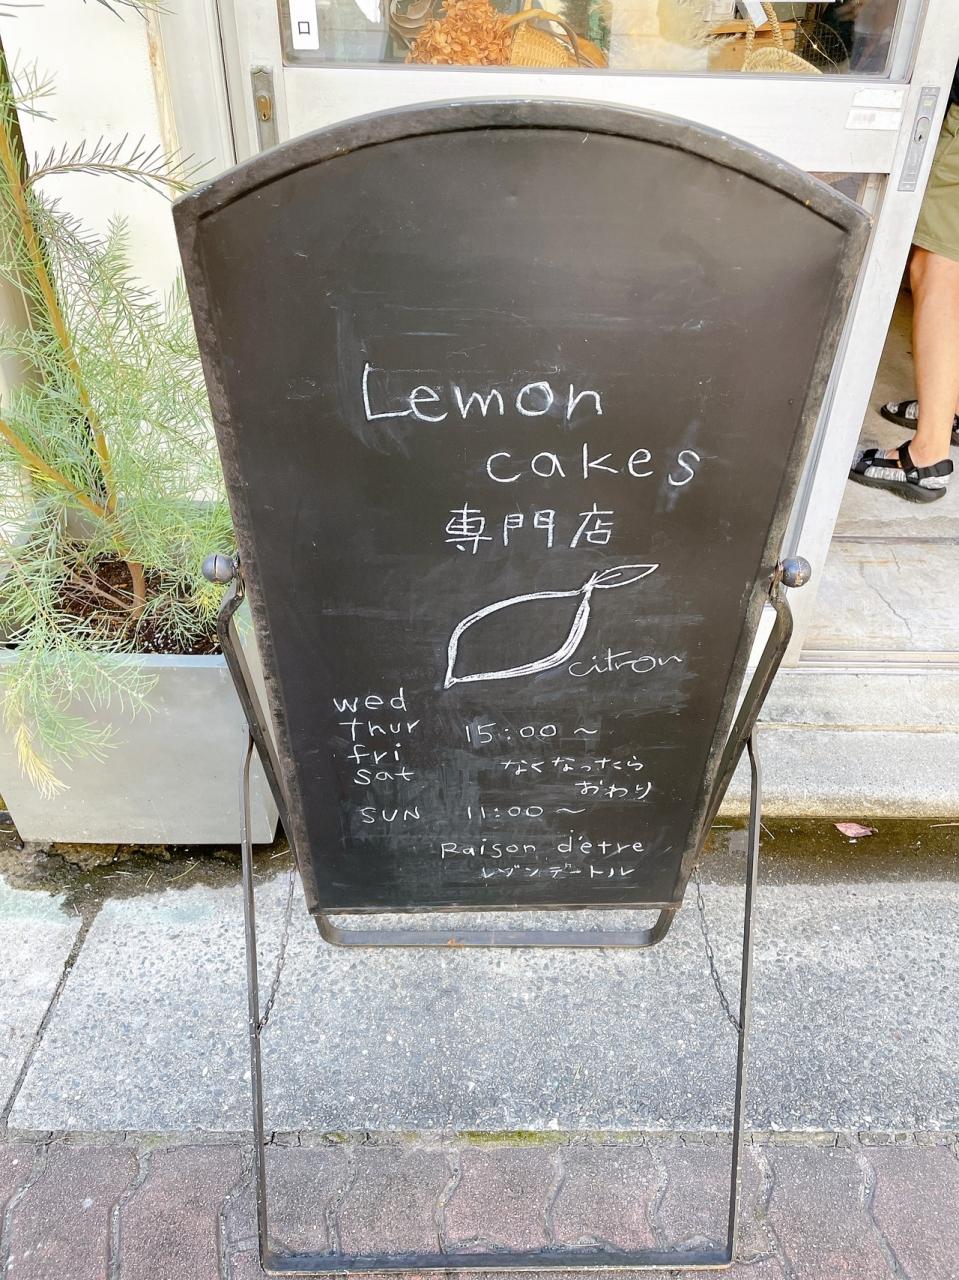 Lemon
cakes
専門店
citron
wed
thur 15:00 ~
fri なくなったら
sat おわり
SUN 11:00 ~
Raison d'être
レゾンデートル